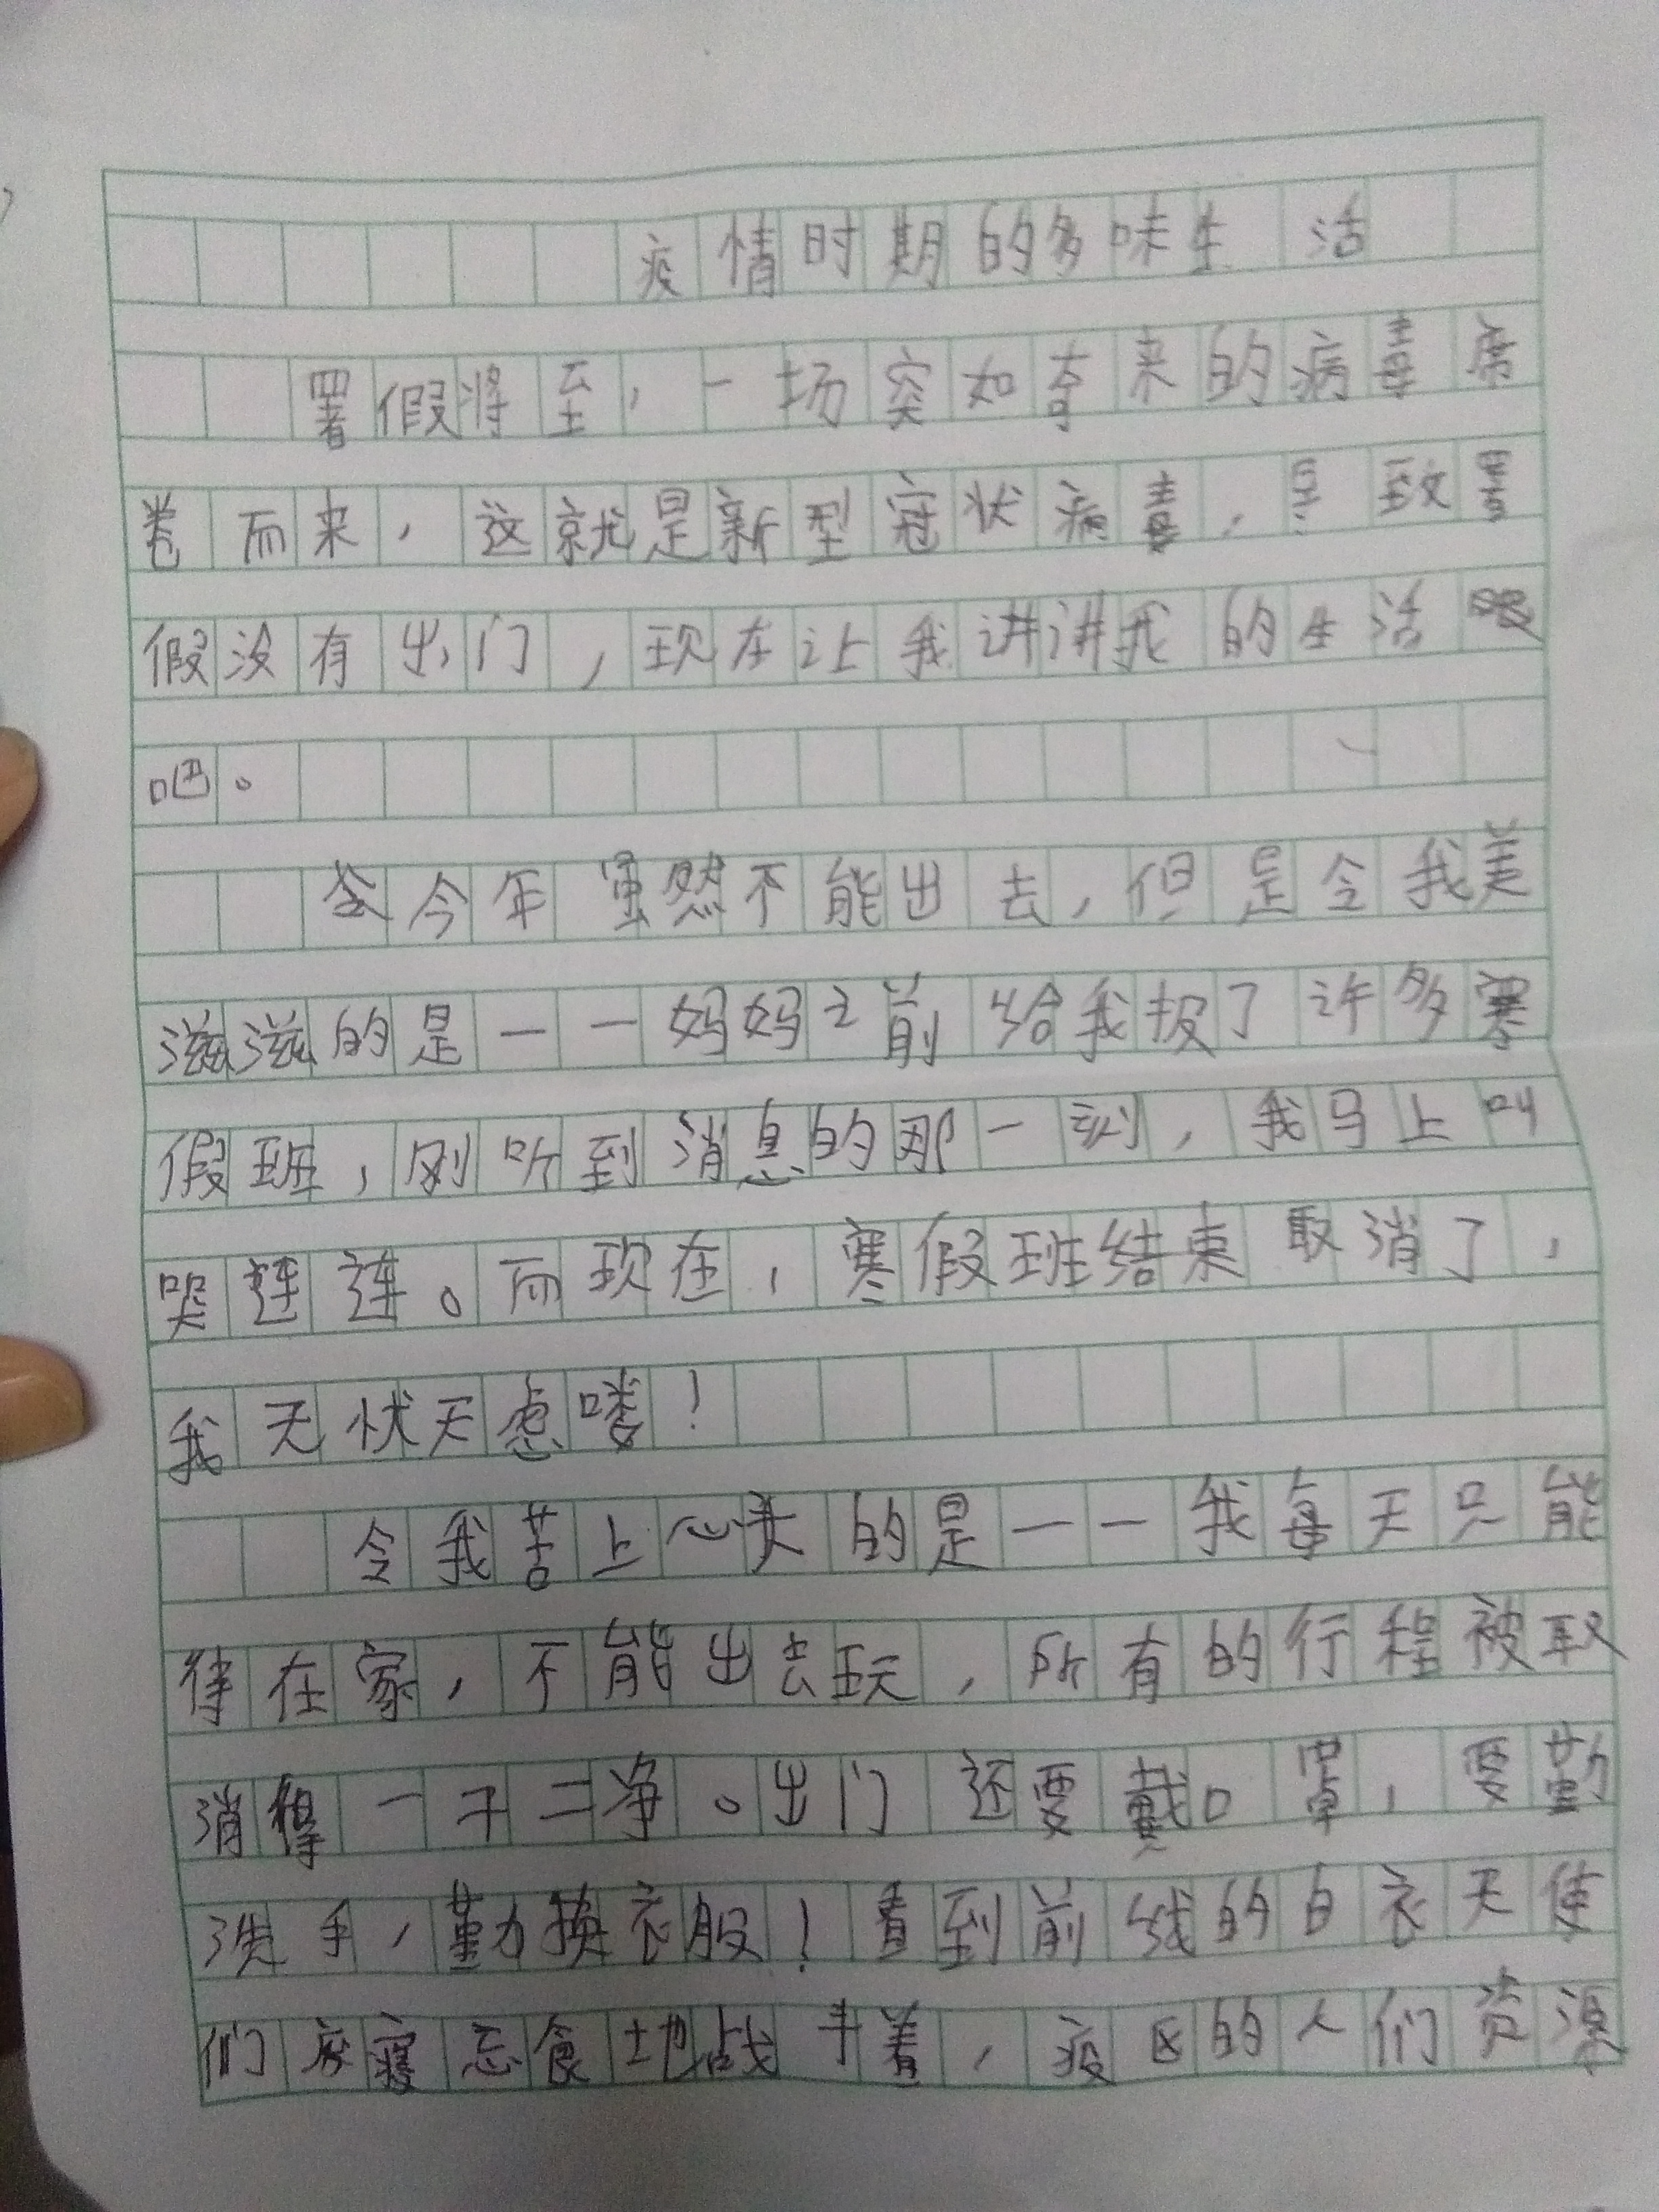 疫情时期的多味生活
署假将至，一场突如奇来的病毒席
卷而来，这就是新型冠状病毒，导致署
假没有出门，现在让我讲讲我的生活
吧。
今年虽然不能出去，但是令我美
滋滋的是——妈妈之前给我报了许多寒
假班，刚听到消息的那一刻，我马上叫
哭连连。而现在，寒假班结束取消了，
我无忧无虑喽！
令我苦上心头的是——我每天只能
待在家，不能出去玩，所有的行程被取
消得一干二净。出门还要戴口罩，要勤
洗手，勤换衣服！看到前线的白衣天使
们废寝忘食地战斗着，疫区的人们资源